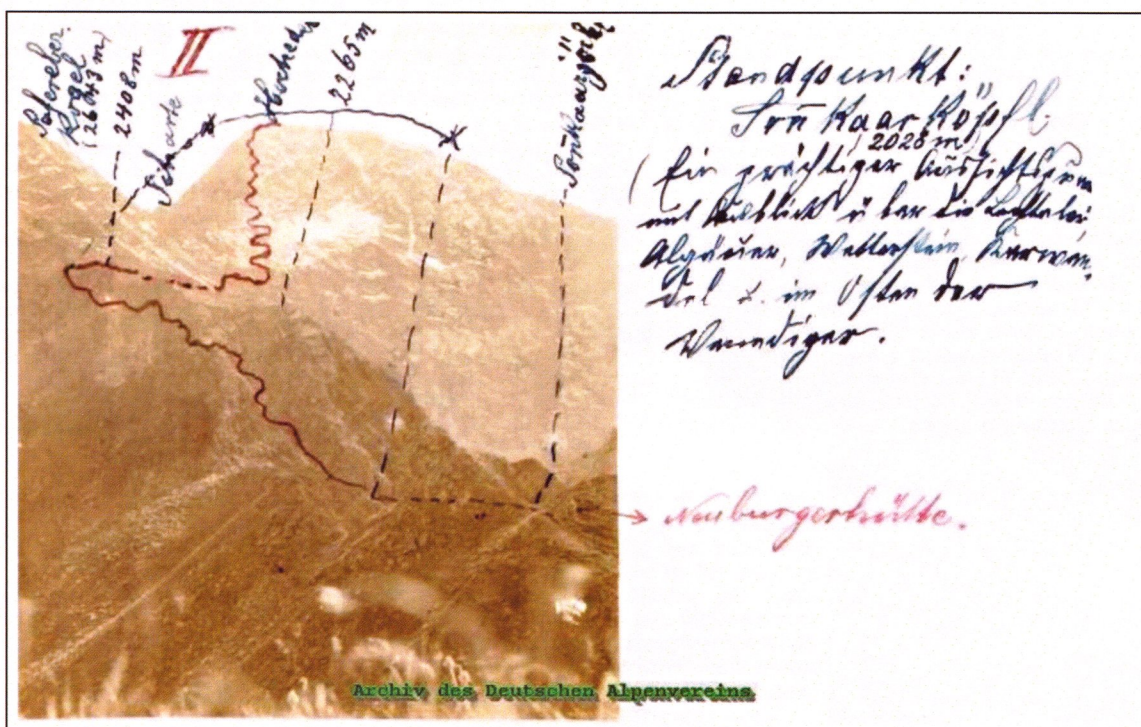 II
(2643 m)
2408 m
Scharte
Hocheder
2265 m
Standpunkt:
Sonnkaarköpfl.
2028 m
(Ein prächtiger Aussichtspunkt
mit Ausblick über die Lechtaler,
Algäuer, Wetterstein, Karwen-
del u. im Osten der
Venediger.
Neuburgerhütte.
Archiv des Deutschen Alpenvereins